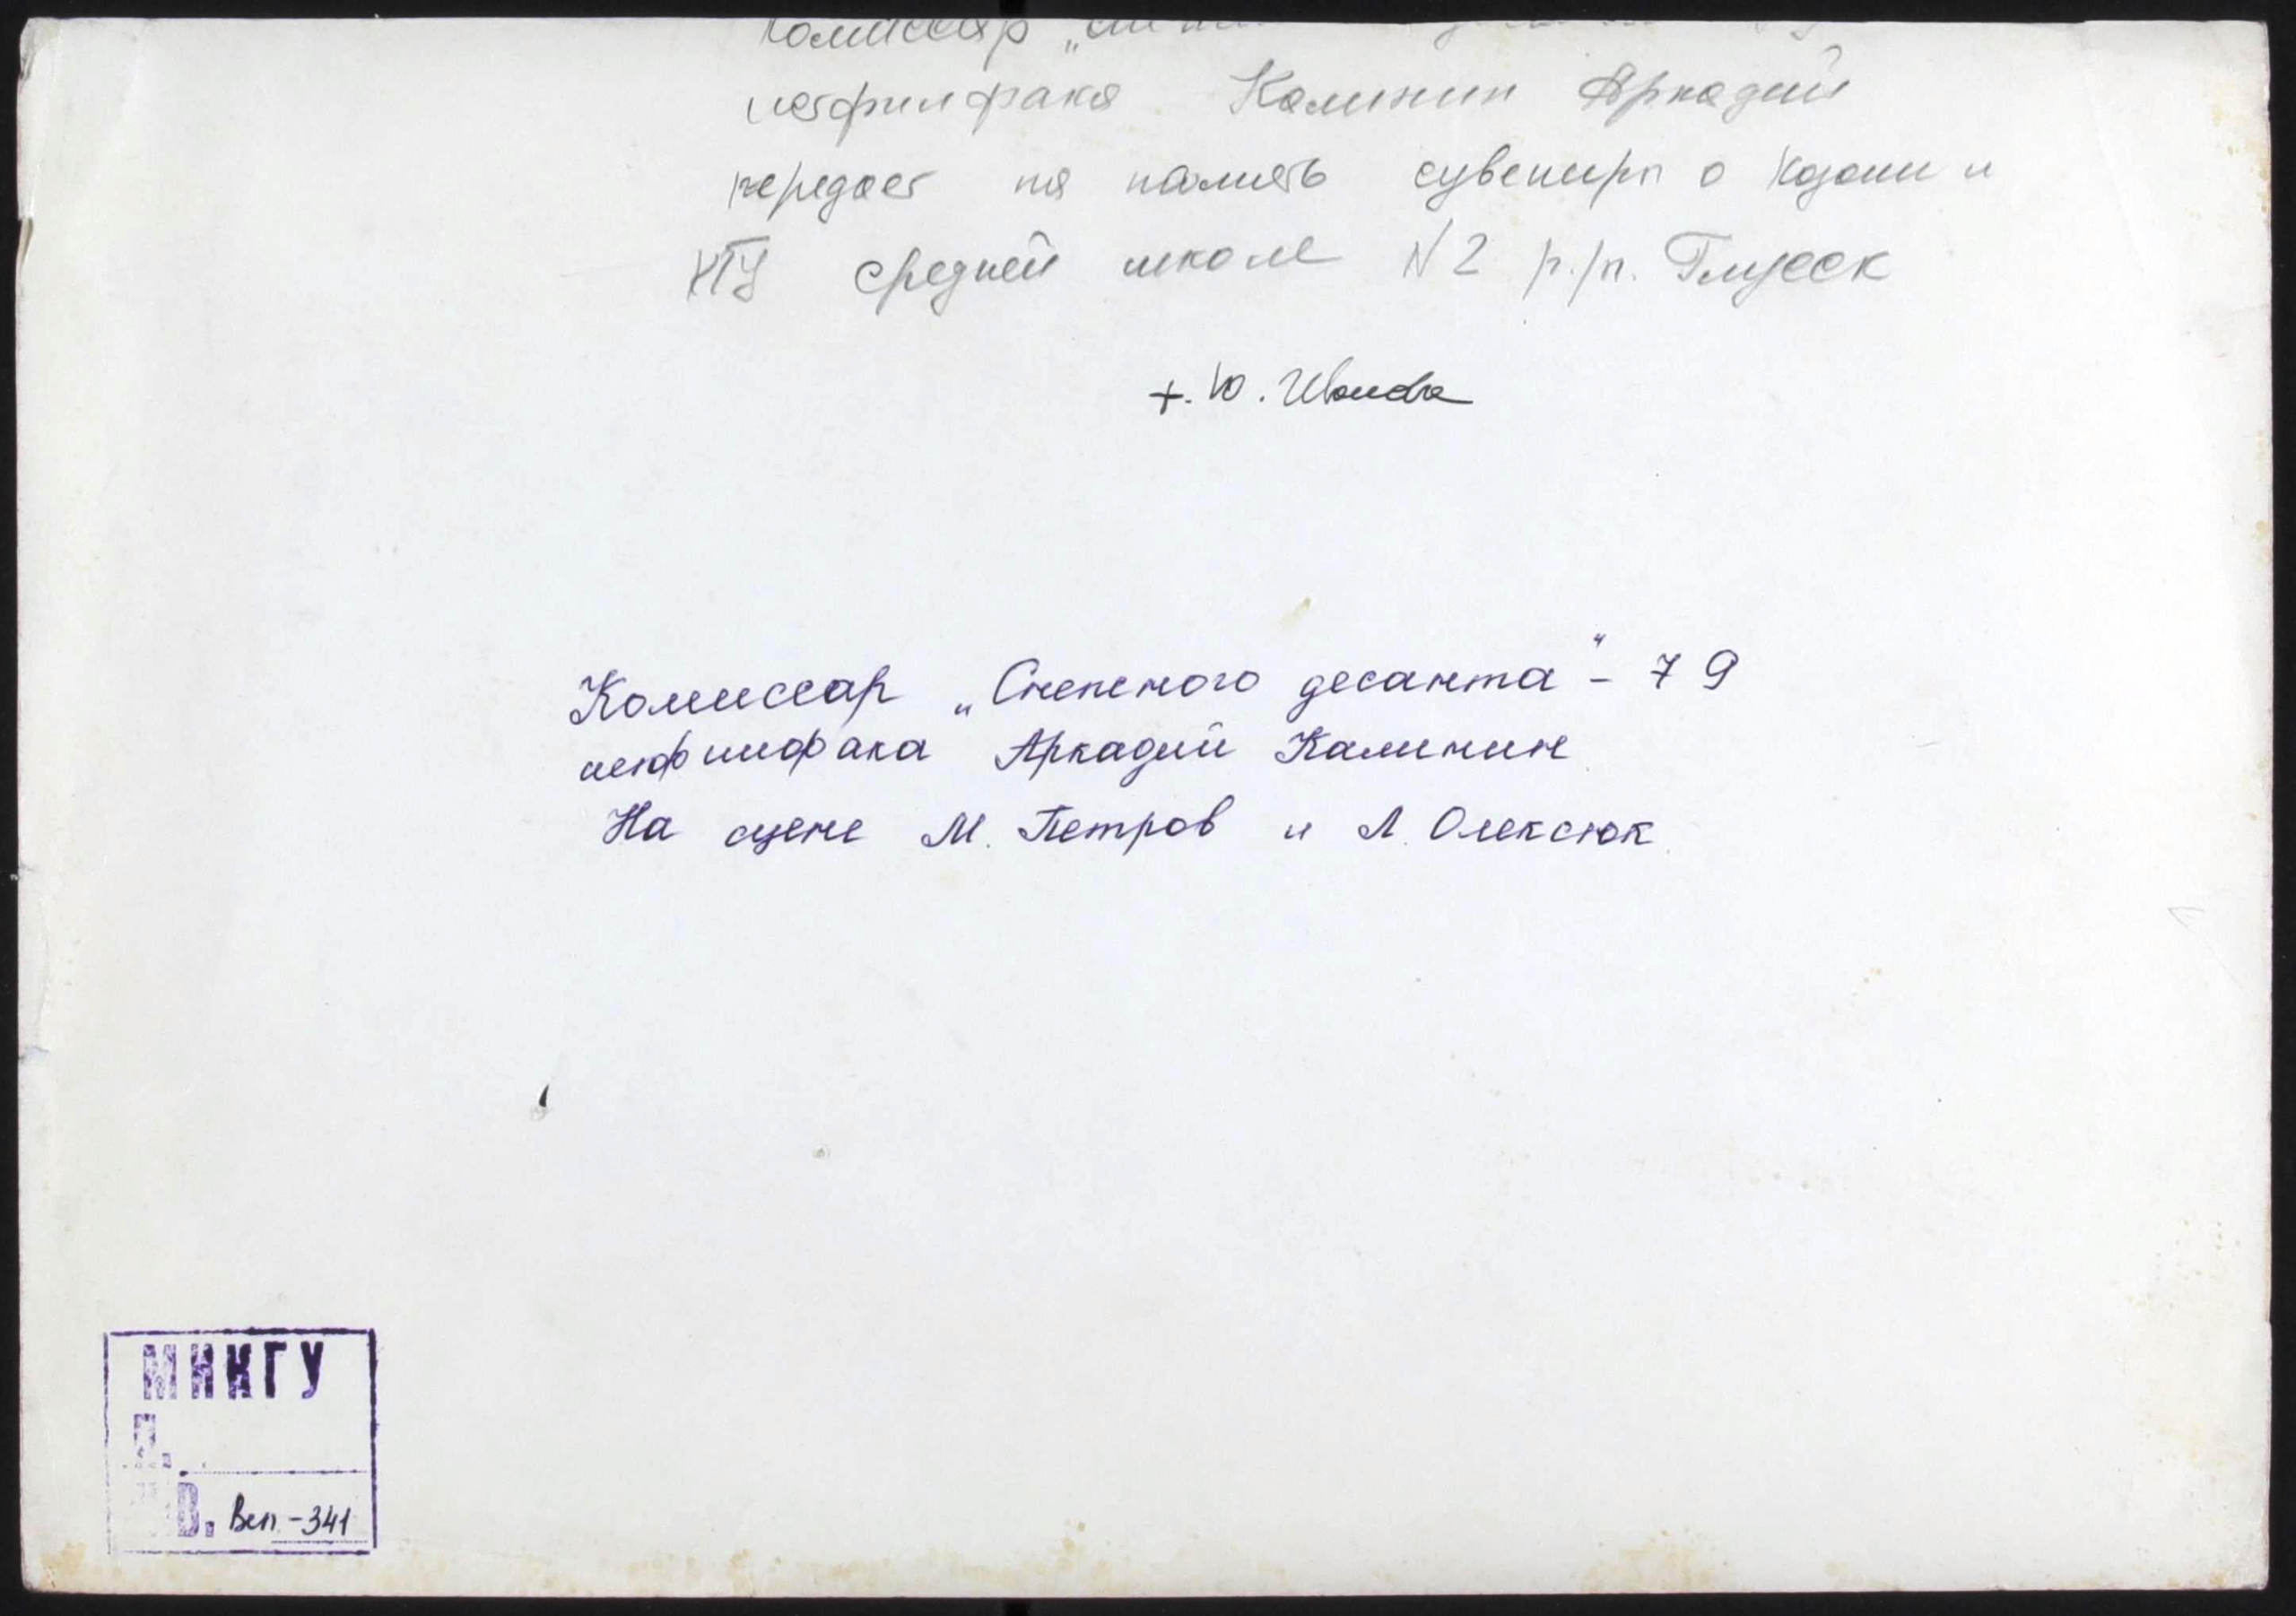 Комиссар „
истфилфака Калинин Аркадий
передает на память сувениры о Казани и
КГУ средней школе N 2 р.п. Глусск
ф. Ю. Иванова
Комиссар „Снежного десанта“ - 79
истфилфака Аркадий Калинин
На сцене М. Петров и Л. Олексюк
МИКГУ
П.
В. Всп - 341